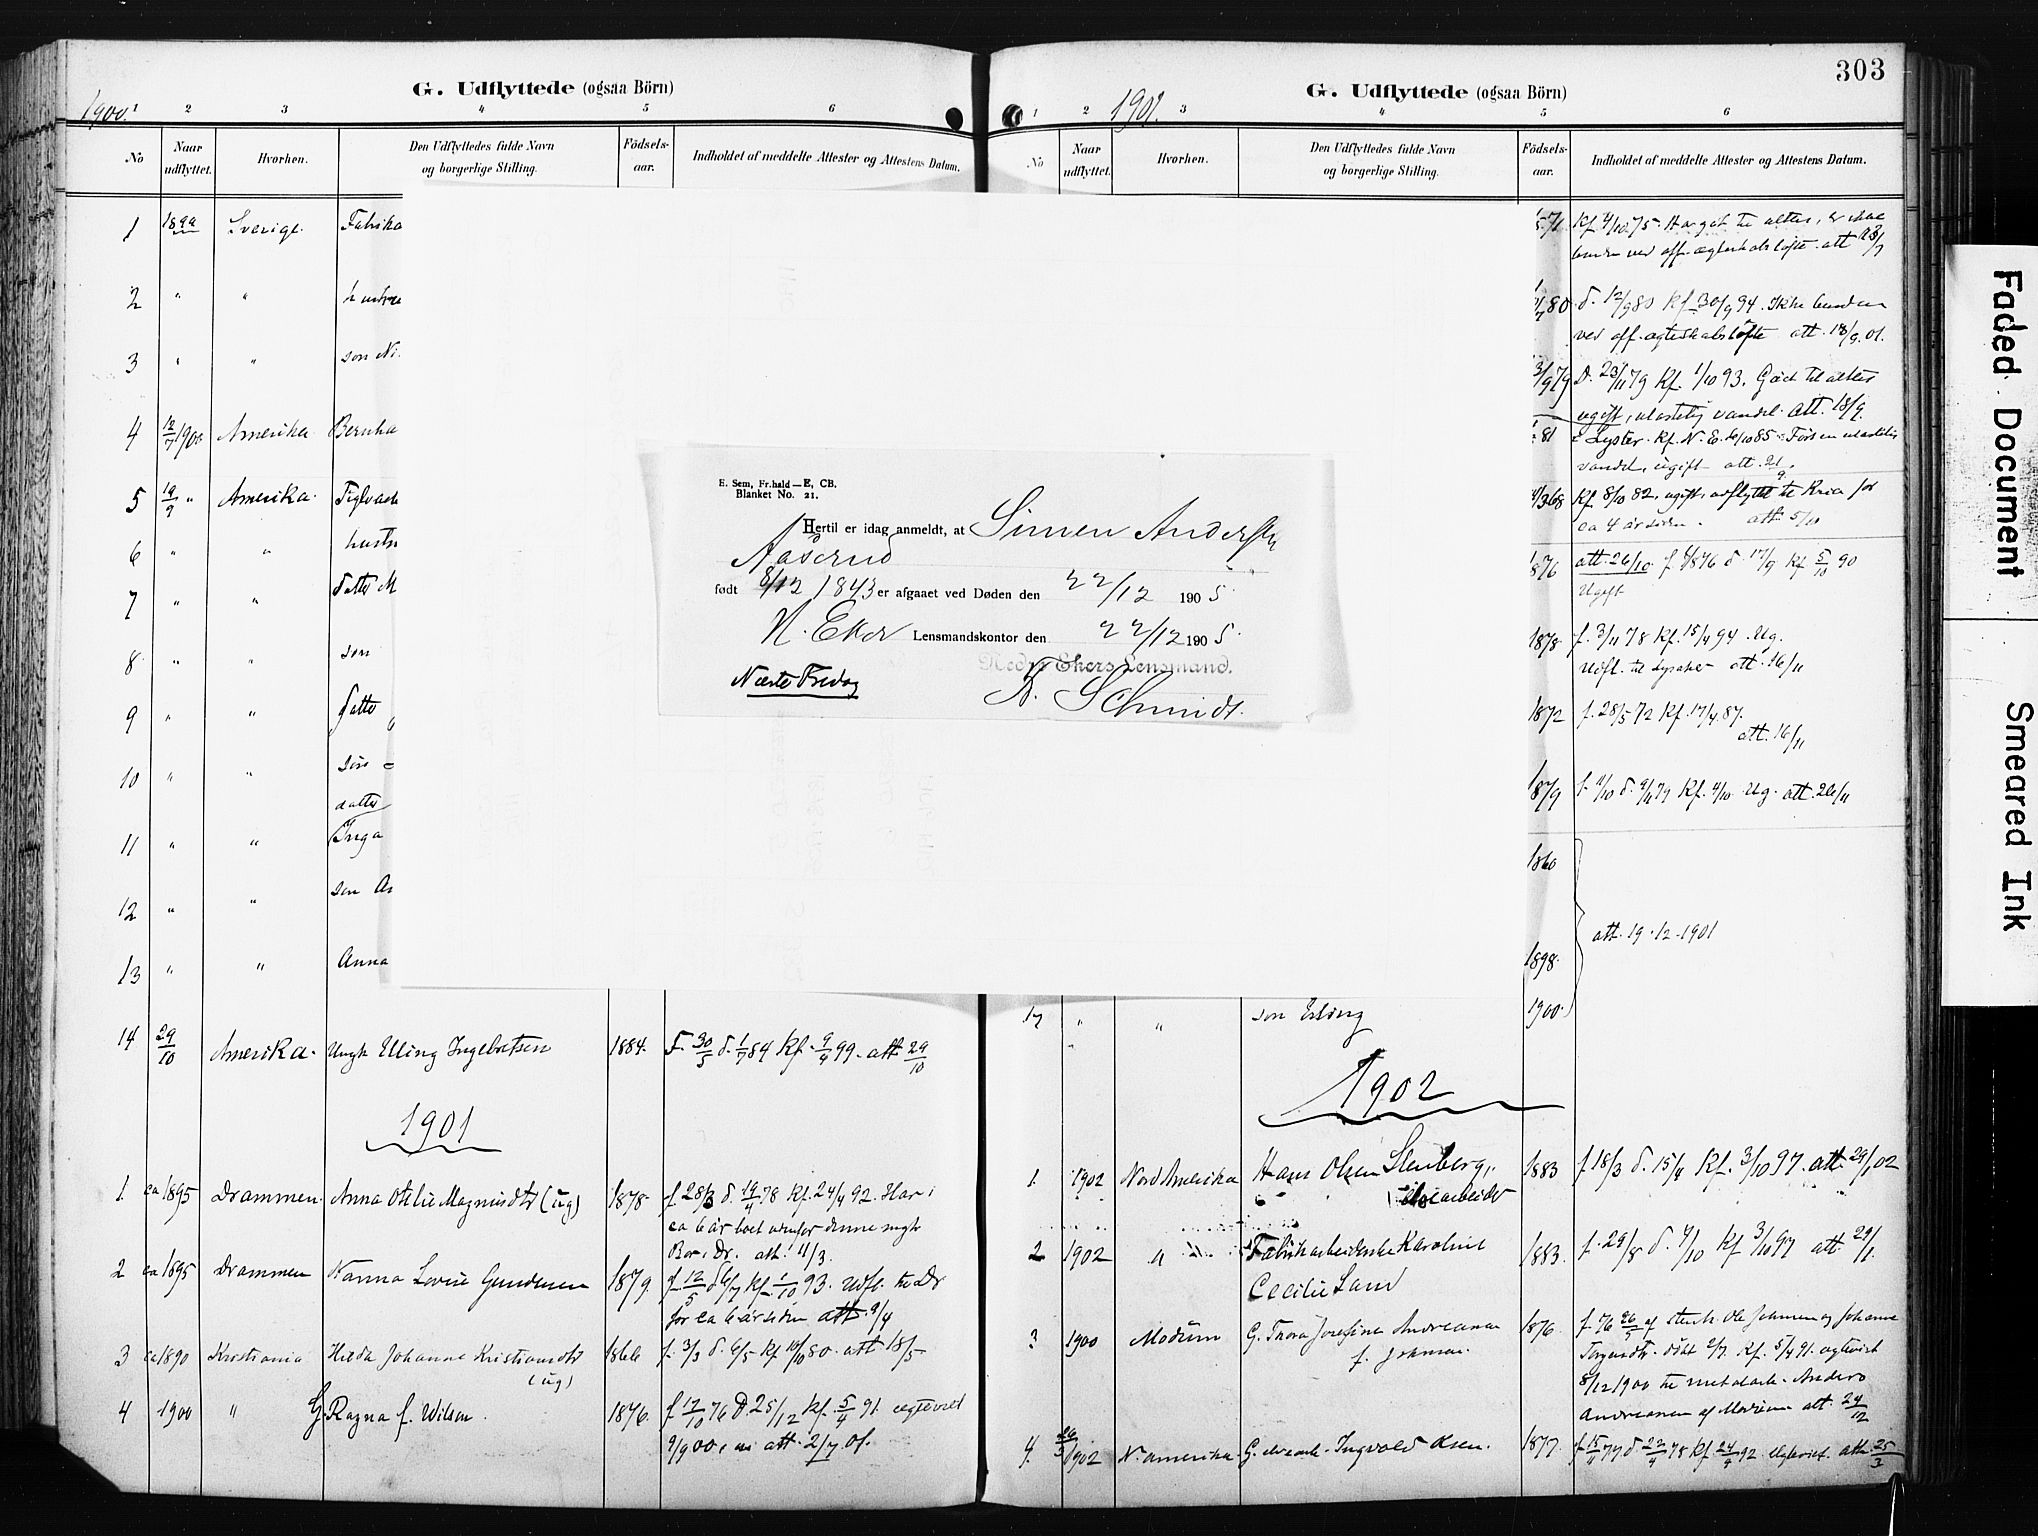 303
G. Udflyttede (ogsaa Börn)
1900.
1 2 3 4 5 6
No
Naar udflyttet.
Hvorhen.
Den Udflyttedes fulde Navn og borgerlige Stilling.
Födsels-aar.
Indholdet af meddelte Attester og Attestens Datum.
1 1899 Sverige. Fabrika
2 " " hustru
3 " " søn Ni
4 12/7 1900 Amerika Bernha
5 19/9 " Amerika.
6 " "
7 " " datter M
8 " " søn
9 " " datter
10 " " søn
datter
11 " " Inga
12 " " søn
13 " " Anna
14 29/10 Amerika. Ungk Elling Ingebretsen 1884. F. 30/5 d. 1/7 84 Kf. 9/9 99. att 29/10
1901
1 ca 1895 Drammen. Anna Otilie Magnusdtr (ug) 1878. f 28/3 d. 19/4 78 Kf. 24/4 92. Har i
ca 6 år boet udenfor denne mgh
Bor i Dr. att. 11/3.
2 ca 1895 Drammen Nanna Lovise Gundersen 1879. f. 12/5 d 6/7 Kf. 1/10 93. Udfl. til Dr
for ca 6 år siden att. 9/4
3 ca 1890 Kristiania Hilda Johanne Kristiansdtr 1866 f. 3/3 d. 6/5 Kf 10/10 80. att 18/5
(ug)
4 1900 " G. Ragna f. Wilson. 1876. f 17/10 76 d. 25/12 Kf. 5/4 91. ægteviet
9/9 00, att. 2/7 01.
E. Sem, Fr.hald—E, CB.
Blanket No. 21.
Hertil er idag anmeldt, at Simen Andersen
Aaserud
født 8/12 1843 er afgaaet ved Døden den 22/12 1905.
N. Eker Lensmandskontor den 22/12 1905.
Nedre Ekers Lensmand.
Næste Fredag
A. Schmidt.
G. Udflyttede (ogsaa Börn)
1901.
1 2 3 4 5 6
No
Naar udflyttet.
Hvorhen.
Den Udflyttedes fulde Navn og borgerlige Stilling.
Födsels-aar.
Indholdet af meddelte Attester og Attestens Datum.
71. Kf. 4/10 75. Har gåt til alters, er ikke
bunden ved off. ægteskabsløfte. att 23/7
80 d. 12/9 80 Kf 30/9 94. Ikke bunden
ved off. ægteskabsløfte att. 18/9. 01.
79 D. 23/11 79 Kf. 1/10 93. Gået til alters
ugift, ulastelig vandel. att. 18/9.
81 i Lyster. Kf. N. E. 4/10 85. Ført en ulastelig
vandel, ugift att. 21/9.
4/3 68 Kf. 8/10 82. ugift, udflyttet til Kria for
ca 4 år siden. att 5/10
1876 att. 26/10. f 4/8 76 d. 17/9 Kf 5/10 90
Ugift
1878 f. 3/11 78 Kf. 15/4 94. Ug.
Udfl. til Lysaker att. 16/11
1872 f. 28/5 72 Kf. 17/4. 87.
att. 16/11
1879 f. 11/10 d. 9/11 79 Kf. 4/10 Ug. att. 26/11
1860
1898.
att. 19-12-1901
17 " " søn Erling 1900.
1902
1. 1902 Nord Amerika Hans Olsen Stenberg, 1883 f 18/3 d. 15/4 Kf. 3/10 97. att. 29/1 02
2 1902 " Fabrikarbeiderske Karoline 1883. f. 29/8 d. 7/10 Kf 3/10 97 att 29/1.
Cecilie Sand
3 1900 Modum G. Thora Josefine Andreana 1876. f. 76 26/5 af stenh. Ole Johnsen og Johanne
f. Johnsen. Torgersdtr. døbt 2/7. Kf. 5/4 91. ægteviet
8/12 1900 til metalarb. Anders
Andreasen af Modum att. 24/12
4. 26/3 1902 N. amerika. G. elvearb. Ingvald Olsen. 1877. f. 15/11 77 d 22/4 78 Kf 24/4 92. Ægteviet. att. 25/3
Faded Document
Smeared Ink